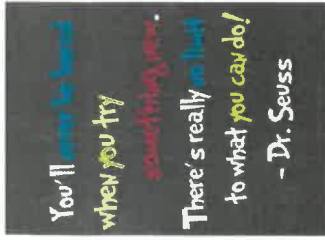 You'll never be bored
when you try
something new.
There's really no limit
to what you can do!
- Dr. Seuss